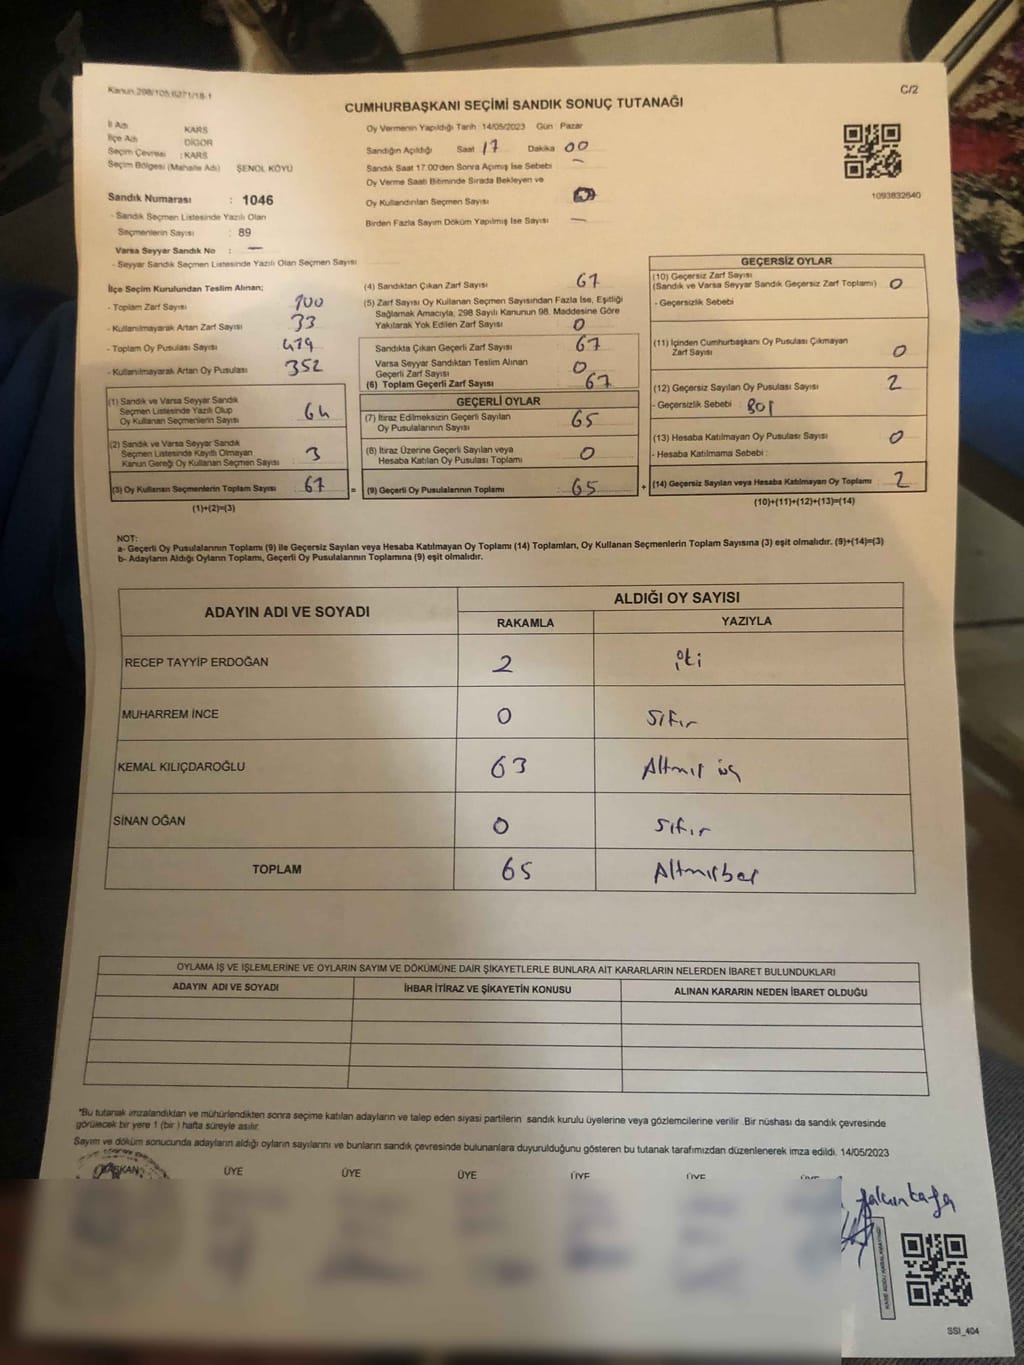 Kanun.298/105;6271/18-1
C/2
CUMHURBAŞKANI SEÇİMİ SANDIK SONUÇ TUTANAĞI
İl Adı KARS
İlçe Adı DİGOR
Seçim Çevresi : KARS
Seçim Bölgesi (Mahalle Adı) ŞENOL KÖYÜ
Sandık Numarası : 1046
- Sandık Seçmen Listesinde Yazılı Olan
Seçmenlerin Sayısı : 89
Varsa Seyyar Sandık No : —
- Seyyar Sandık Seçmen Listesinde Yazılı Olan Seçmen Sayısı
Oy Vermenin Yapıldığı Tarih :14/05/2023 Gün : Pazar
Sandığın Açıldığı Saat 17 Dakika 00
Sandık Saat 17.00'den Sonra Açımış İse Sebebi —
Oy Verme Saati Bitiminde Sırada Bekleyen ve
Oy Kullandırılan Seçmen Sayısı
Birden Fazla Sayım Döküm Yapılmış İse Sayısı —
1093832640
İlçe Seçim Kurulundan Teslim Alınan;
- Toplam Zarf Sayısı 100
- Kullanılmayarak Artan Zarf Sayısı 33
- Toplam Oy Pusulası Sayısı 419
- Kullanılmayarak Artan Oy Pusulası 352
(1) Sandık ve Varsa Seyyar Sandık
Seçmen Listesinde Yazılı Olup
Oy Kullanan Seçmenlerin Sayısı 64
(2) Sandık ve Varsa Seyyar Sandık
Seçmen Listesinde Kayıtlı Olmayan
Kanun Gereği Oy Kullanan Seçmen Sayısı 3
(3) Oy Kullanan Seçmenlerin Toplam Sayısı 67 =
(1)+(2)=(3)
(4) Sandıktan Çıkan Zarf Sayısı 67
(5) Zarf Sayısı Oy Kullanan Seçmen Sayısından Fazla İse, Eşitliği
Sağlamak Amacıyla, 298 Sayılı Kanunun 98. Maddesine Göre
Yakılarak Yok Edilen Zarf Sayısı 0
Sandıkta Çıkan Geçerli Zarf Sayısı 67
Varsa Seyyar Sandıktan Teslim Alınan
Geçerli Zarf Sayısı 0
(6) Toplam Geçerli Zarf Sayısı 67
GEÇERLİ OYLAR
(7) İtiraz Edilmeksizin Geçerli Sayılan
Oy Pusulalarının Sayısı 65
(8) İtiraz Üzerine Geçerli Sayılan veya
Hesaba Katılan Oy Pusulası Toplamı 0
(9) Geçerli Oy Pusulalarının Toplamı 65 +
GEÇERSİZ OYLAR
(10) Geçersiz Zarf Sayısı
(Sandık ve Varsa Seyyar Sandık Geçersiz Zarf Toplamı) 0
- Geçersizlik Sebebi
(11) İçinden Cumhurbaşkanı Oy Pusulası Çıkmayan
Zarf Sayısı 0
(12) Geçersiz Sayılan Oy Pusulası Sayısı 2
- Geçersizlik Sebebi : Boş
(13) Hesaba Katılmayan Oy Pusulası Sayısı 0
- Hesaba Katılmama Sebebi :
(14) Geçersiz Sayılan veya Hesaba Katılmayan Oy Toplamı 2
(10)+(11)+(12)+(13)=(14)
NOT:
a- Geçerli Oy Pusulalarının Toplamı (9) ile Geçersiz Sayılan veya Hesaba Katılmayan Oy Toplamı (14) Toplamları, Oy Kullanan Seçmenlerin Toplam Sayısına (3) eşit olmalıdır. (9)+(14)=(3)
b- Adayların Aldığı Oyların Toplamı, Geçerli Oy Pusulalarının Toplamına (9) eşit olmalıdır.
ADAYIN ADI VE SOYADI ALDIĞI OY SAYISI
RAKAMLA YAZIYLA
RECEP TAYYİP ERDOĞAN 2 iki
MUHARREM İNCE 0 sıfır
KEMAL KILIÇDAROĞLU 63 Altmış üç
SİNAN OĞAN 0 sıfır
TOPLAM 65 Altmışbeş
OYLAMA İŞ VE İŞLEMLERİNE VE OYLARIN SAYIM VE DÖKÜMÜNE DAİR ŞİKAYETLERLE BUNLARA AİT KARARLARIN NELERDEN İBARET BULUNDUKLARI
ADAYIN ADI VE SOYADI İHBAR İTİRAZ VE ŞİKAYETİN KONUSU ALINAN KARARIN NEDEN İBARET OLDUĞU
*Bu tutanak imzalandıktan ve mühürlendikten sonra seçime katılan adayların ve talep eden siyasi partilerin sandık kurulu üyelerine veya gözlemcilerine verilir. Bir nüshası da sandık çevresinde
görülecek bir yere 1 (bir ) hafta süreyle asılır.
Sayım ve döküm sonucunda adayların aldığı oyların sayılarını ve bunların sandık çevresinde bulunanlara duyurulduğunu gösteren bu tutanak tarafımızdan düzenlenerek imza edildi. 14/05/2023
BAŞKAN ÜYE ÜYE ÜYE ÜYE ÜYE
SSI_404